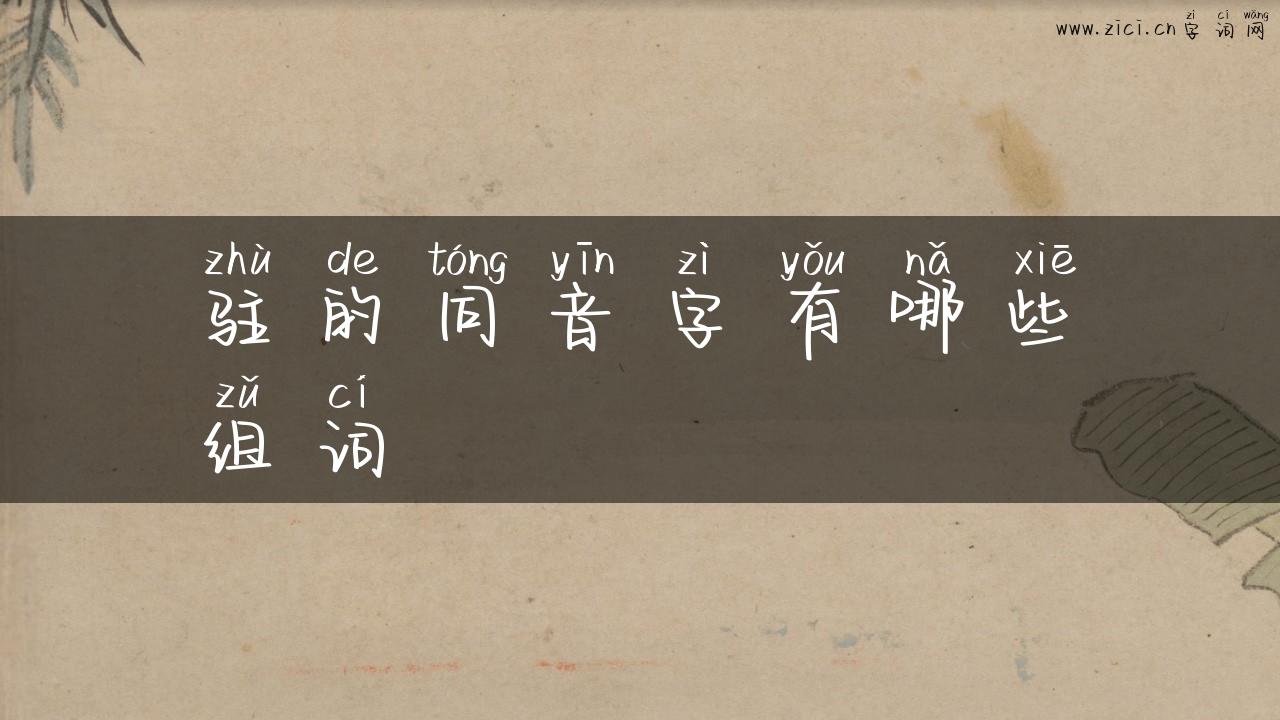 zì cí wǎng
www.zici.cn 字词网
zhù de tóng yīn zì yǒu nǎ xiē
驻的同音字有哪些
zǔ cí
组词